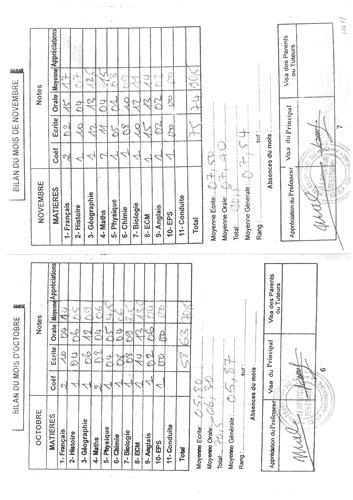 BILAN DU MOIS D'OCTOBRE
OCTOBRE
Notes
MATIERES Coef Ecrite Orale Moyenne Appréciations
1- Français 2 10 04 14
2- Histoire 1 04 06 05
3- Géographie 1 06 12 09
4- Maths
5- Physique 1 04 05
6- Chimie 1 08 04 06
7- Biologie 1 08 08
8- ECM 1 14 13
9- Anglais 1 02 06 04
10- EPS 1 00 00
11- Conduite
Total 58 63
Moyenne Ecrite: 05,80
Moyenne Orale: 06,30
Total:
Moyenne Générale: 05,87
Rang: sur:
Absences du mois
Appréciation du Professeur
Visa du Principal
Visa des Parents
ou Tuteurs
6
BILAN DU MOIS DE NOVEMBRE
NOVEMBRE
Notes
MATIERES Coef Ecrite Orale Moyenne Appréciations
1- Français 2 02 15 17
2- Histoire 1 10 04 07
3- Géographie 1 12 13 12,5
4- Maths 2 11 04 15
5- Physique 1 05 01 03
6- Chimie 1 08 10 09
7- Biologie 1 10 12 11
8- ECM 1 15 13 14
9- Anglais 1 02 02 02
10- EPS 1 00 00
11- Conduite
Total 75 74
Moyenne Ecrite: 07,50
Moyenne Orale: 07,40
Total:
Moyenne Générale: 07,54
Rang: sur:
Absences du mois
Appréciation du Professeur
Visa du Principal
Visa des Parents
ou Tuteurs
7